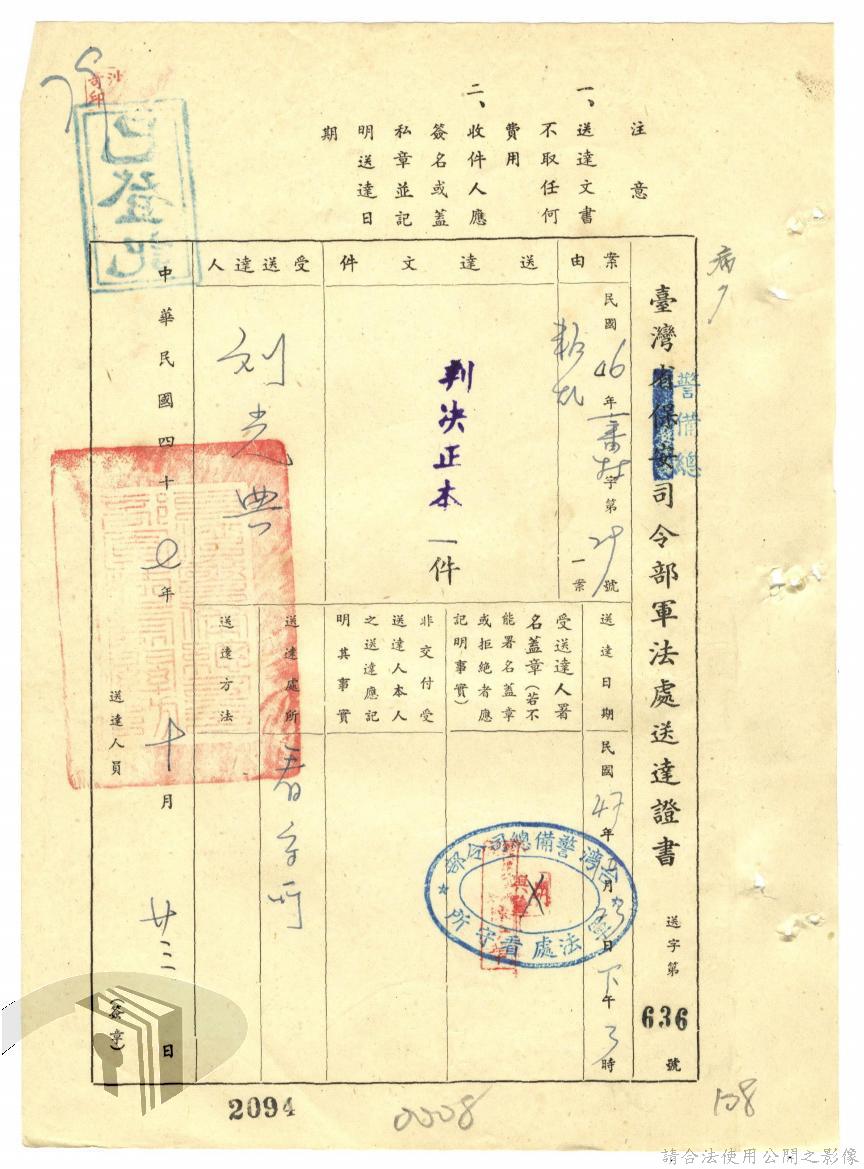 注意
一、送達文書
不取任何
費用
二、收件人應
簽名或蓋
私章並記
明送達日
期
臺灣省保安司令部軍法處送達證書
警備總
送字第
636
號
案由
民國46年審字第29號
一案
叛亂
送達文件
判決正本一件
受送達人
刘光典
送達日期
民國47年月日下午3時
受送達人署
名蓋章(若不
能署名蓋章
或拒絕者應
記明事實)
非交付受
送達人本人
之送達應記
明其事實
送達處所
看守所
送達方法
中華民國四十七年十月廿三日
送達人員
(簽章)
台灣警備總司令部
軍法處看守所
已登記
2094
0008
138
請合法使用公開之影像